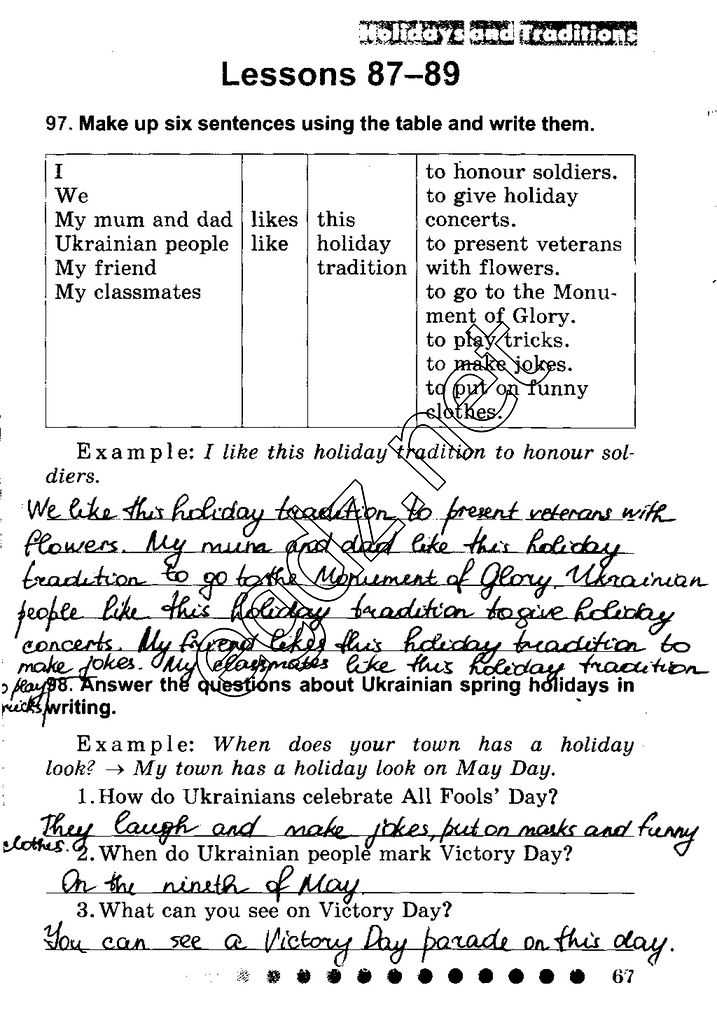 Holidays and Traditions
Lessons 87–89
97. Make up six sentences using the table and write them.
I
We
My mum and dad
Ukrainian people
My friend
My classmates
likes
like
this
holiday
tradition
to honour soldiers.
to give holiday
concerts.
to present veterans
with flowers.
to go to the Monu-
ment of Glory.
to play tricks.
to make jokes.
to put on funny
clothes.
Example: I like this holiday tradition to honour sol-
diers.
We like this holiday tradition to present veterans with
flowers. My mum and dad like this holiday
tradition to go to the Monument of Glory. Ukrainian
people like this holiday tradition to give holiday
concerts. My friend likes this holiday tradition to
make jokes. My classmates like this holiday tradition
to play
tricks.
98. Answer the questions about Ukrainian spring holidays in
writing.
Example: When does your town has a holiday
look? → My town has a holiday look on May Day.
1. How do Ukrainians celebrate All Fools' Day?
They laugh and make jokes, put on masks and funny
clothes.
2. When do Ukrainian people mark Victory Day?
On the nineth of May
3. What can you see on Victory Day?
You can see a Victory Day parade on this day.
67
©gdz.net